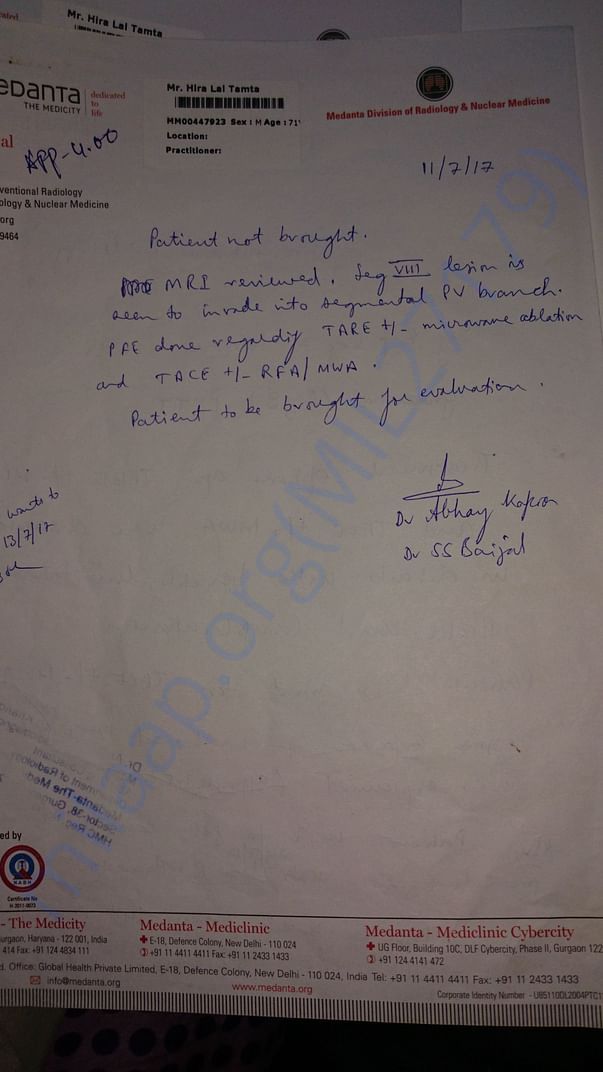 Mr. Hira Lal Tamta
edanta
THE MEDICITY
dedicated
to
life
Mr. Hira Lal Tamta
MM00447923 Sex : M Age : 71
Location:
Practitioner:
Medanta Division of Radiology & Nuclear Medicine
al
APP-4.00
11/7/17
ventional Radiology
ology & Nuclear Medicine
org
9464
Patient not brought.
MRI reviewed. Seg VIII lesion is
seen to invade into segmental PV branch.
PFE done regarding TARE +/- microwave ablation
and TACE +/- RFA/MWA.
Patient to be brought for evaluation.
wants to
13/7/17
Dr Abhay Kapoor
Dr SS Baijal
milaap.org(MIL27179)
Medanta-The Med
Sector-38, Gurg
HMC Reg.
ed by
NABH
Certificate No
H 2011-0073
- The Medicity
urgaon, Haryana - 122 001, India
414 Fax: +91 124 4834 111
Medanta - Mediclinic
E-18, Defence Colony, New Delhi - 110 024
+91 11 4411 4411 Fax: +91 11 2433 1433
Medanta - Mediclinic Cybercity
UG Floor, Building 10C, DLF Cybercity, Phase II, Gurgaon 122
+91 124 4141 472
d. Office: Global Health Private Limited, E-18, Defence Colony, New Delhi - 110 024, India Tel: +91 11 4411 4411 Fax: +91 11 2433 1433
info@medanta.org
www.medanta.org
Corporate Identity Number - U85110DL2004PTC1